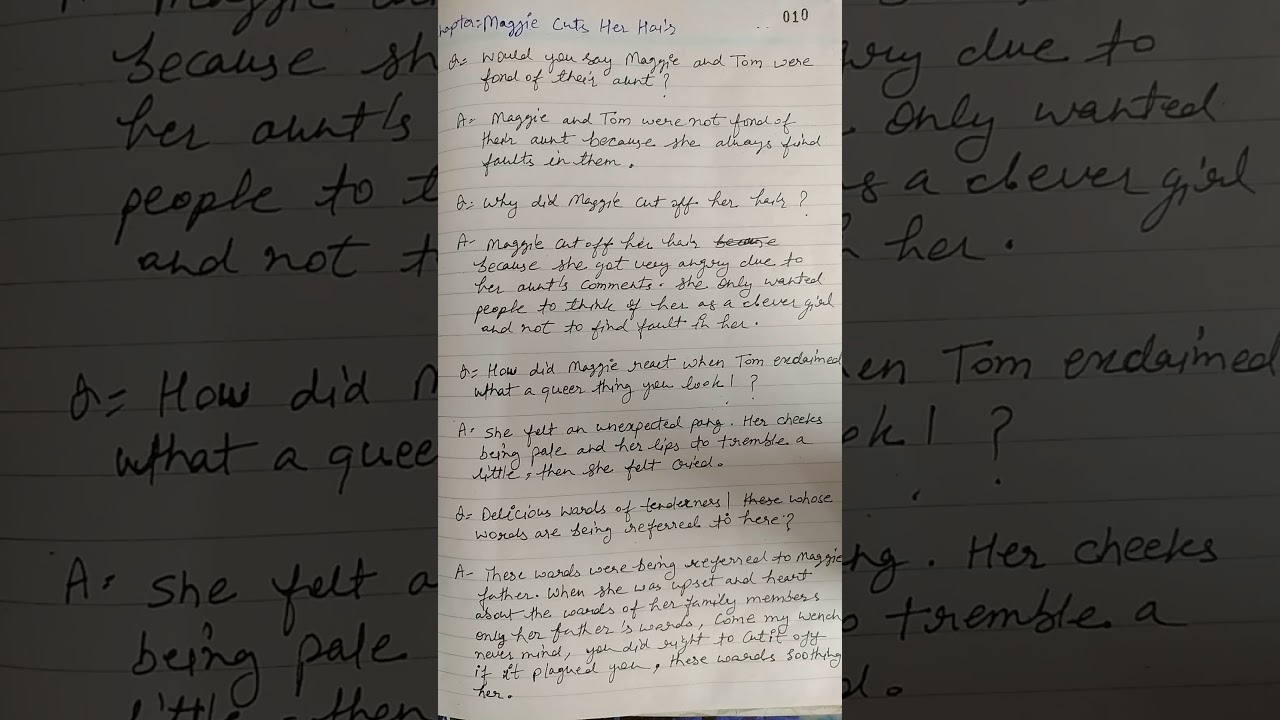 Chapter:- Maggie Cuts Her Hair
010
Q= Would you say Maggie and Tom were
fond of their aunt?
A= Maggie and Tom were not fond of
their aunt because she always find
faults in them.
Q= Why did Maggie cut off her hair?
A- Maggie cut off her hair because
because she got very angry due to
her aunt's comments. She only wanted
people to think of her as a clever girl
and not to find fault in her.
Q= How did Maggie react when Tom exclaimed
what a queer thing you look! ?
A= She felt an unexpected pang. Her cheeks
being pale and her lips to tremble a
little, then she felt cried.
Q= Delicious words of tenderness! these whose
words are being referred to here?
A- These words were being referred to Maggie
father. When she was upset and heart
about the words of her family members
only her father's words, Come my wench
never mind, you did right to cut it off
if it plagued you, these words soothing
her.